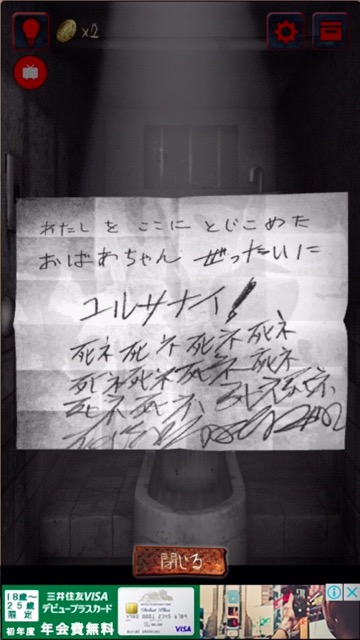 x2
わたしを ここに とじこめた
おばあちゃん ぜったいに
ユルサナイ!
死ネ死ネ死ネ死ネ
死ネ死ネ死ネ死ネ
死ネ死ネ、死ネ死ネ、
閉じる
18歳〜
25歳
限定
初年度
三井住友VISA
デビュープラスカード
年会費無料
VISA